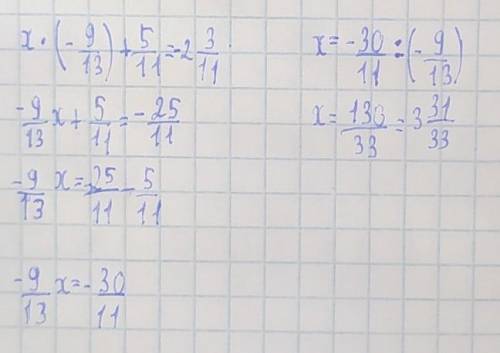 x · (-9/13) + 5/11 = -2 3/11
-9/13 x + 5/11 = -25/11
-9/13 x = -25/11 - 5/11
-9/13 x = -30/11
x = -30/11 : (-9/13)
x = 130/33 = 3 31/33